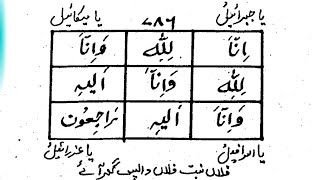 یا جبرائیل ۷۸۶ یا میکائیل
اِنَّا لِلّٰهِ وَاِنَّا
لِلّٰهِ وَاِنَّا اَلیهِ
وَاِنَّا اَلیهِ رَاجِعُون
یا اسرافیل یا عزرائیل
فلاں بنت فلاں واپس گھر آئے